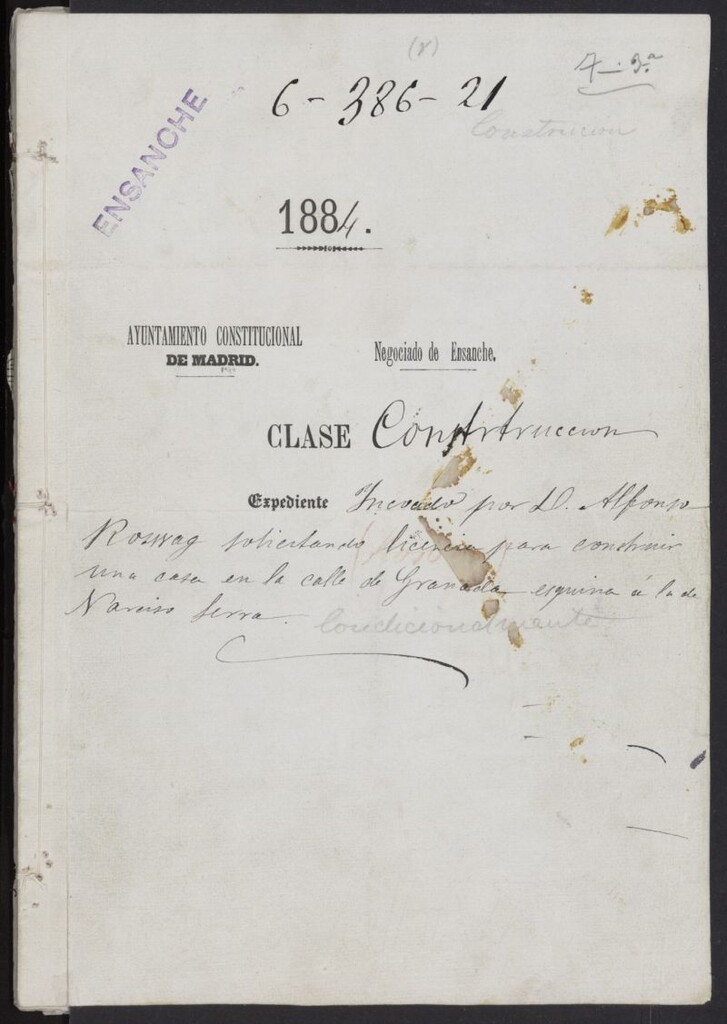 (8)
7-3.ª
6-386-21
Construccion
ENSANCHE
1884.
AYUNTAMIENTO CONSTITUCIONAL
DE MADRID.
Negociado de Ensanche.
CLASE Construccion
Expediente Incoado por D. Alfonso
Roswag solicitando licencia para construir
una casa en la calle de Granada esquina á la de
Narciso Serra. Condicionalmente